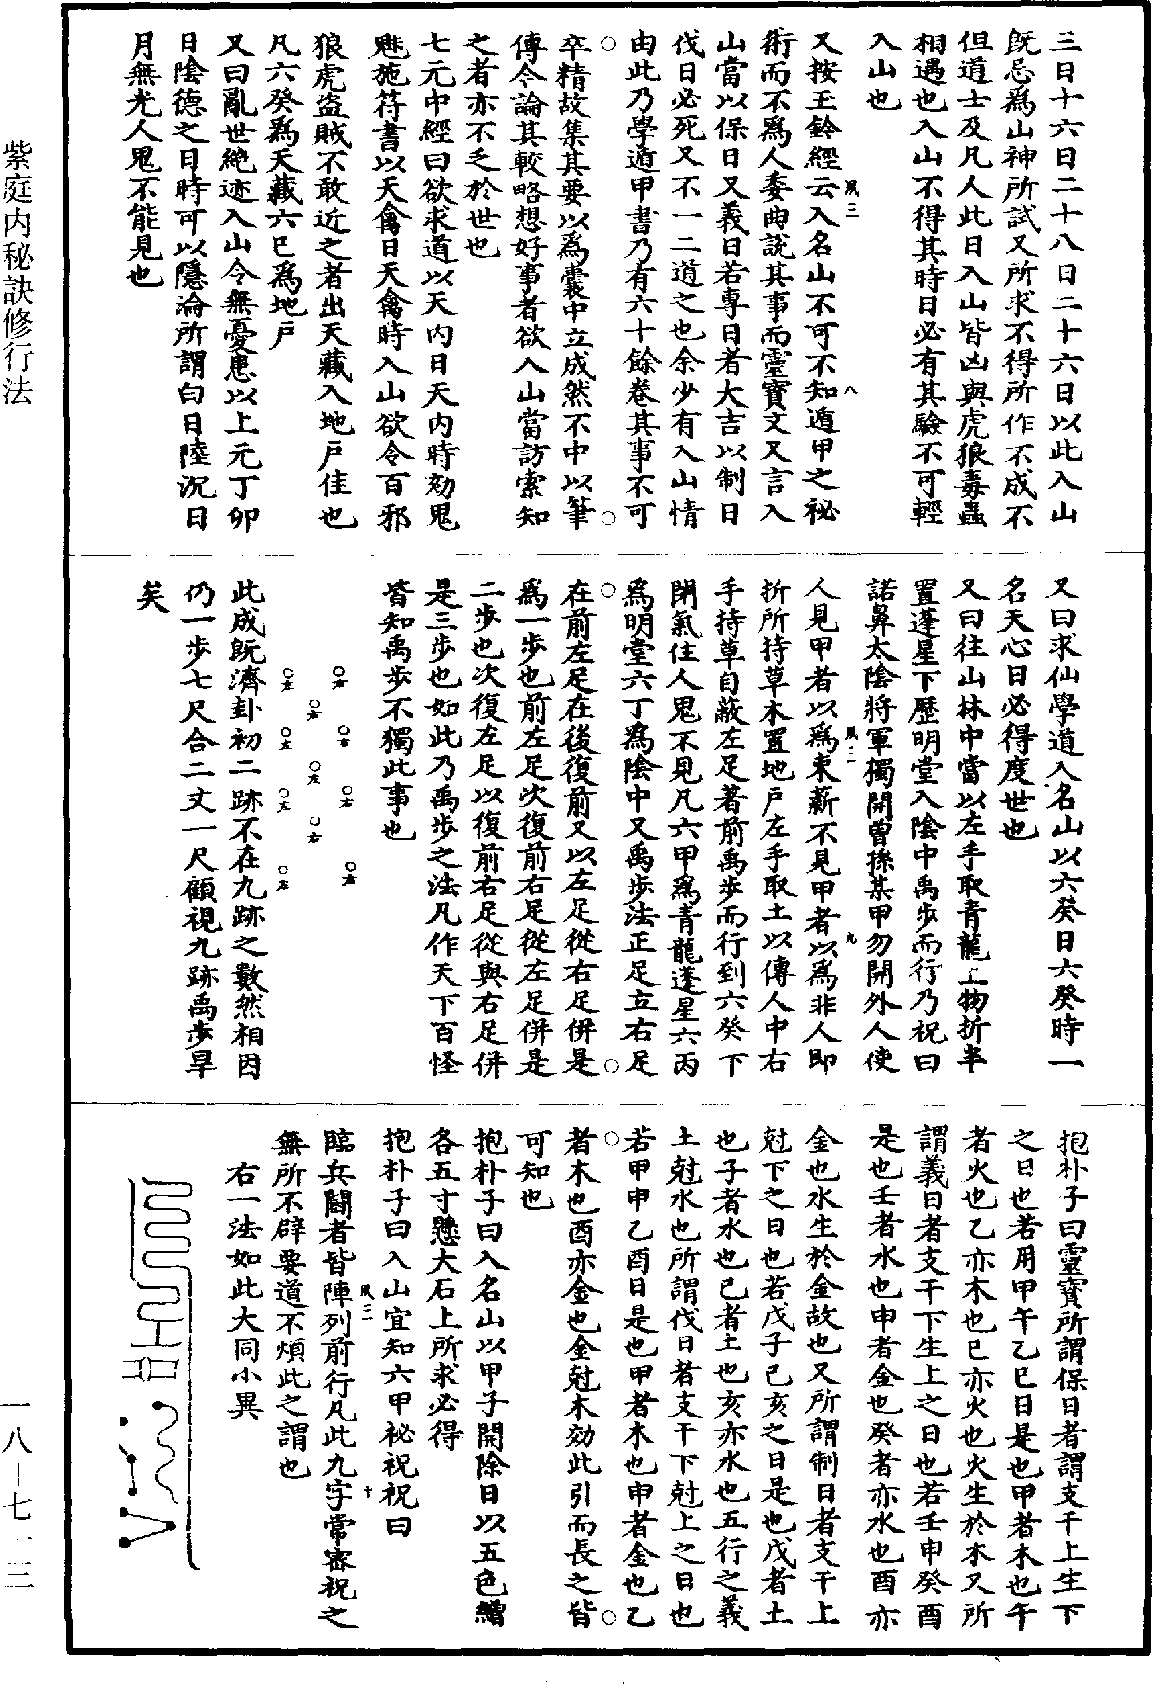 三日十六日二十八日二十六日以此入山
既忌為山神所試又所求不得所作不成不
但道士及凡人此日入山皆凶與虎狼毒蟲
相遇也入山不得其時日必有其驗不可輕
入山也
又按玉鈴經云入名山不可不知遁甲之祕
術而不為人委曲説其事而靈寶文又言入
山當以保日又義日若專日者大吉以制日
伐日必死又不一二道之也余少有入山情
由此乃學遁甲書乃有六十餘卷其事不可
卒精故集其要以為囊中立成然不中以筆
傳今論其較略想好事者欲入山當訪索知
之者亦不乏於世也
七元中經曰欲求道以天内日天内時効鬼
魅施符書以天禽日天禽時入山欲令百邪
狼虎盜賊不敢近之者出天藏入地戶佳也
凡六癸為天藏六巳為地戶
又曰亂世絶迹入山令無憂患以上元丁卯
日陰德之日時可以隱淪所謂白日陸沉日
月無光人鬼不能見也
又曰求仙學道入名山以六癸日六癸時一
名天心日必得度世也
又曰往山林中當以左手取青龍上物折半
置蓬星下歷明堂入陰中禹步而行乃祝曰
諾皋太陰將軍獨開曽孫某甲勿開外人使
人見甲者以為束薪不見甲者以為非人即
折所持草木置地戶左手取土以傳人中右
手持草自蔽左足著前禹步而行到六癸下
閉氣住人鬼不見凡六甲為青龍蓬星六丙
為明堂六丁為陰中又禹步法正足立右足
在前左足在後復前又以左足從右足併是
為一步也前左足次復前右足從左足併是
二步也次復左足以復前右足從與右足併
是三步也如此乃禹步之法凡作天下百怪
皆知禹步不獨此事也
此成既濟卦初二跡不在九跡之數然相因
仍一步七尺合二丈一尺顧視九跡禹步旱
矣
抱朴子曰靈寶所謂保日者謂支干上生下
之日也若用甲午乙巳日是也甲者木也午
者火也乙亦木也巳亦火也火生於木又所
謂義日者支干下生上之日也若壬申癸酉
是也壬者水也申者金也癸者亦水也酉亦
金也水生於金故也又所謂制日者支干上
尅下之日也若戊子己亥之日是也戊者土
也子者水也己者土也亥亦水也五行之義
土尅水也所謂伐日者支干下尅上之日也
若甲申乙酉日是也甲者木也申者金也乙
者木也酉亦金也金尅木効此引而長之皆
可知也
抱朴子曰入名山以甲子開除日以五色繒
各五寸懸大石上所求必得
抱朴子曰入山宜知六甲祕祝祝曰
臨兵闘者皆陣列前行凡此九字常密祝之
無所不辟要道不煩此之謂也
右一法如此大同小異
紫庭内秘訣修行法
一八-七一三